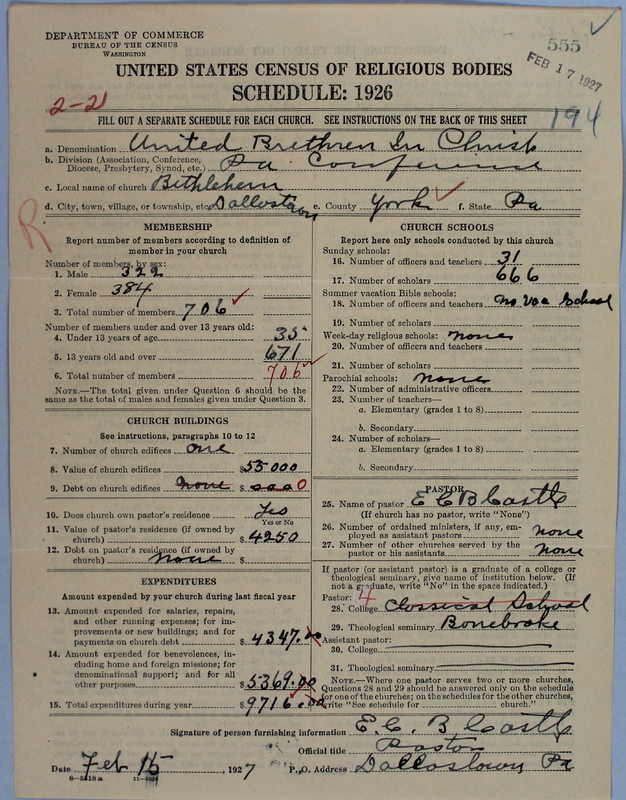 DEPARTMENT OF COMMERCE
BUREAU OF THE CENSUS
WASHINGTON
555
FEB 17 1927
UNITED STATES CENSUS OF RELIGIOUS BODIES
SCHEDULE: 1926
2-21
FILL OUT A SEPARATE SCHEDULE FOR EACH CHURCH. SEE INSTRUCTIONS ON THE BACK OF THIS SHEET
194
a. Denomination United Brethren In Christ
b. Division (Association, Conference, Diocese, Presbytery, Synod, etc.) Pa. Conference
c. Local name of church Bethlehem
d. City, town, village, or township, etc. Dallastown e. County York f. State Pa
R
MEMBERSHIP
Report number of members according to definition of
member in your church
Number of members, by sex:
1. Male 322
2. Female 384
3. Total number of members 706
Number of members under and over 13 years old:
4. Under 13 years of age 35
5. 13 years old and over 671
6. Total number of members 706
NOTE.—The total given under Question 6 should be
same as the total of males and females given under Question 3.
CHURCH BUILDINGS
See instructions, paragraphs 10 to 12
7. Number of church edifices one
8. Value of church edifices $55000
9. Debt on church edifices none $ 0000
10. Does church own pastor's residence? Yes
Yes or No
11. Value of pastor's residence (if owned by
church) $4250
12. Debt on pastor's residence (if owned by
church) none $
EXPENDITURES
Amount expended by your church during last fiscal year
13. Amount expended for salaries, repairs,
and other running expenses; for im-
provements or new buildings; and for
payments on church debt $4347.00
14. Amount expended for benevolences, in-
cluding home and foreign missions; for
denominational support; and for all
other purposes $5369.00
15. Total expenditures during year $9716.00
CHURCH SCHOOLS
Report here only schools conducted by this church
Sunday schools:
16. Number of officers and teachers 31
17. Number of scholars 666
Summer vacation Bible schools:
18. Number of officers and teachers no vac School
19. Number of scholars
Week-day religious schools: none
20. Number of officers and teachers
21. Number of scholars
Parochial schools: none
22. Number of administrative officers
23. Number of teachers—
a. Elementary (grades 1 to 8)
b. Secondary
24. Number of scholars—
a. Elementary (grades 1 to 8)
b. Secondary
PASTOR
25. Name of pastor E C B Castle
(If church has no pastor, write "None")
26. Number of ordained ministers, if any, em-
ployed as assistant pastors none
27. Number of other churches served by the
pastor or his assistants none
If pastor (or assistant pastor) is a graduate of a college or
theological seminary, give name of institution below. (If
not a graduate, write "No" in the space indicated.)
Pastor: 4
28. College Classical School
29. Theological seminary Bonebrake
Assistant pastor:
30. College
31. Theological seminary
NOTE.—Where one pastor serves two or more churches,
Questions 28 and 29 should be answered only on the schedule
for one of the churches; on the schedules for the other churches,
write "See schedule for church."
Signature of person furnishing information E. C. B Castle
Official title Pastor
Date Feb 15, 1927 P. O. Address Dallastown Pa